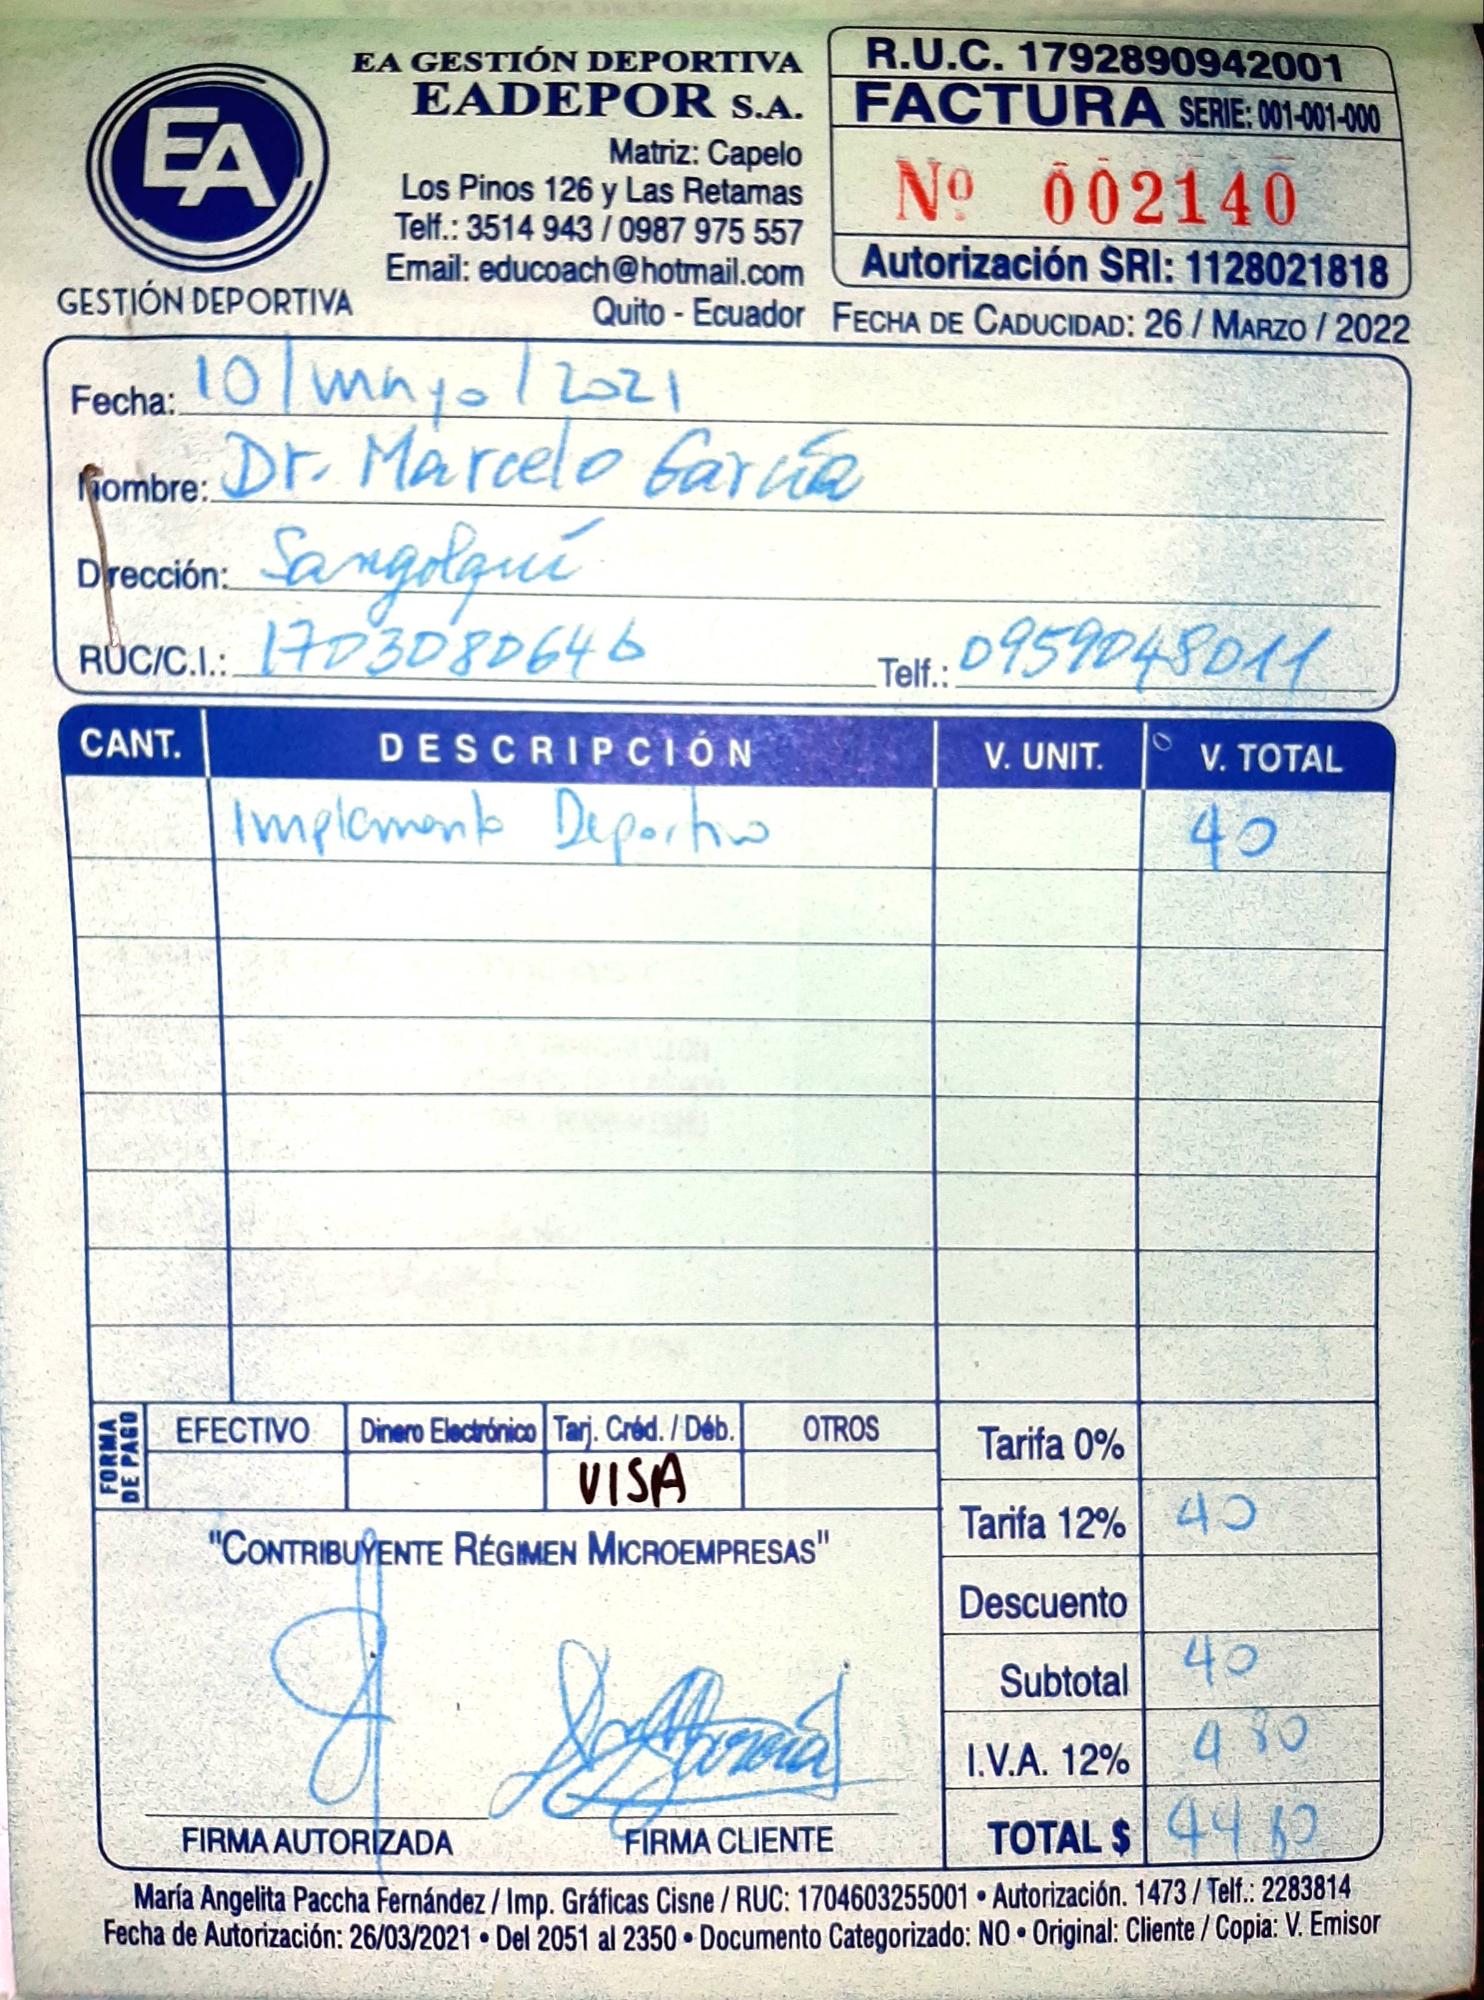 EA GESTIÓN DEPORTIVA
EADEPOR S.A.
Matriz: Capelo
Los Pinos 126 y Las Retamas
Telf.: 3514 943 / 0987 975 557
Email: educoach@hotmail.com
Quito - Ecuador
EA
GESTIÓN DEPORTIVA
R.U.C. 1792890942001
FACTURA SERIE: 001-001-000
Nº 002140
Autorización SRI: 1128021818
FECHA DE CADUCIDAD: 26 / MARZO / 2022
Fecha: 10/mayo/2021
Nombre: Dr. Marcelo García
Dirección: Sangolquí
RUC/C.I.: 1703080646 Telf.: 0959048011
CANT. DESCRIPCIÓN V. UNIT. V. TOTAL
Implemento Deportivo 40
FORMA DE PAGO
EFECTIVO Dinero Electrónico Tarj. Créd. / Déb. OTROS
VISA
Tarifa 0%
Tarifa 12% 40
Descuento
Subtotal 40
I.V.A. 12% 4 80
TOTAL $ 44 80
"CONTRIBUYENTE RÉGIMEN MICROEMPRESAS"
FIRMA AUTORIZADA FIRMA CLIENTE
María Angelita Paccha Fernández / Imp. Gráficas Cisne / RUC: 1704603255001 • Autorización. 1473 / Telf.: 2283814
Fecha de Autorización: 26/03/2021 • Del 2051 al 2350 • Documento Categorizado: NO • Original: Cliente / Copia: V. Emisor